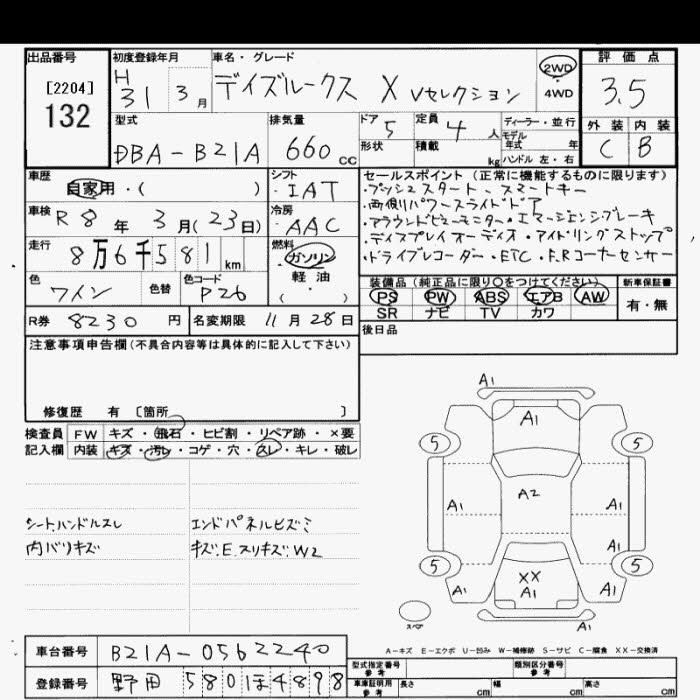 出品番号 初度登録年月 車名・グレード 2WD 評価点
[2204] H 31 3月 デイズルークス X Vセレクション 4WD 3.5
132
型式 排気量 ドア 5 定員 4人 ディーラー・並行 外装 内装
DBA-B21A 660cc 形状 積載 kg モデル年式 年 C B
ハンドル 左・右
車歴 シフト セールスポイント (正常に機能するものに限ります)
自家用・( ) ・IAT ・プッシュスタート、スマートキー
・両側パワースライドドア
車検 R8年 3月(23日) 冷房 ・アラウンドビューモニター・エマージェンシブレーキ
・AAC ・ディスプレイオーディオ・アイドリングストップ
走行 8万6千581km 燃料 ・ドライブレコーダー・ETC・F.Rコーナーセンサー
ガソリン
軽・油
・( )
色 色替 色コード 装備品 (純正品に限り〇をつけてください) 新車保証書
ワイン P26 PS PW ABS エアB AW 有・無
SR ナビ TV カワ
R券 8230円 名変期限 11月28日 後日品
注意事項申告欄 (不具合内容等は具体的に記入して下さい)
修復歴 有 〔箇所 〕
検査員 FW キズ・飛石・ヒビ割・リペア跡・×要
記入欄 内装 キズ・汚レ・コゲ・穴・スレ・キレ・破レ
シート、ハンドルスレ エンドパネルヒズミ
内バリキズ キズ:E.スリキズ:W2
A1
A1
5 5
A2
A1 A1
A1
5 XX 5
A1 A1 A1
スペア A1
A-キズ E-エクボ U-凹み W-補修跡 S-サビ C-腐食 XX-交換済
車台番号 B21A-0562240
型式指定番号 参考 類別区分番号 参考
登録番号 野田 580ほ4898
車庫証明用 参考 長さ cm 幅 cm 高さ cm